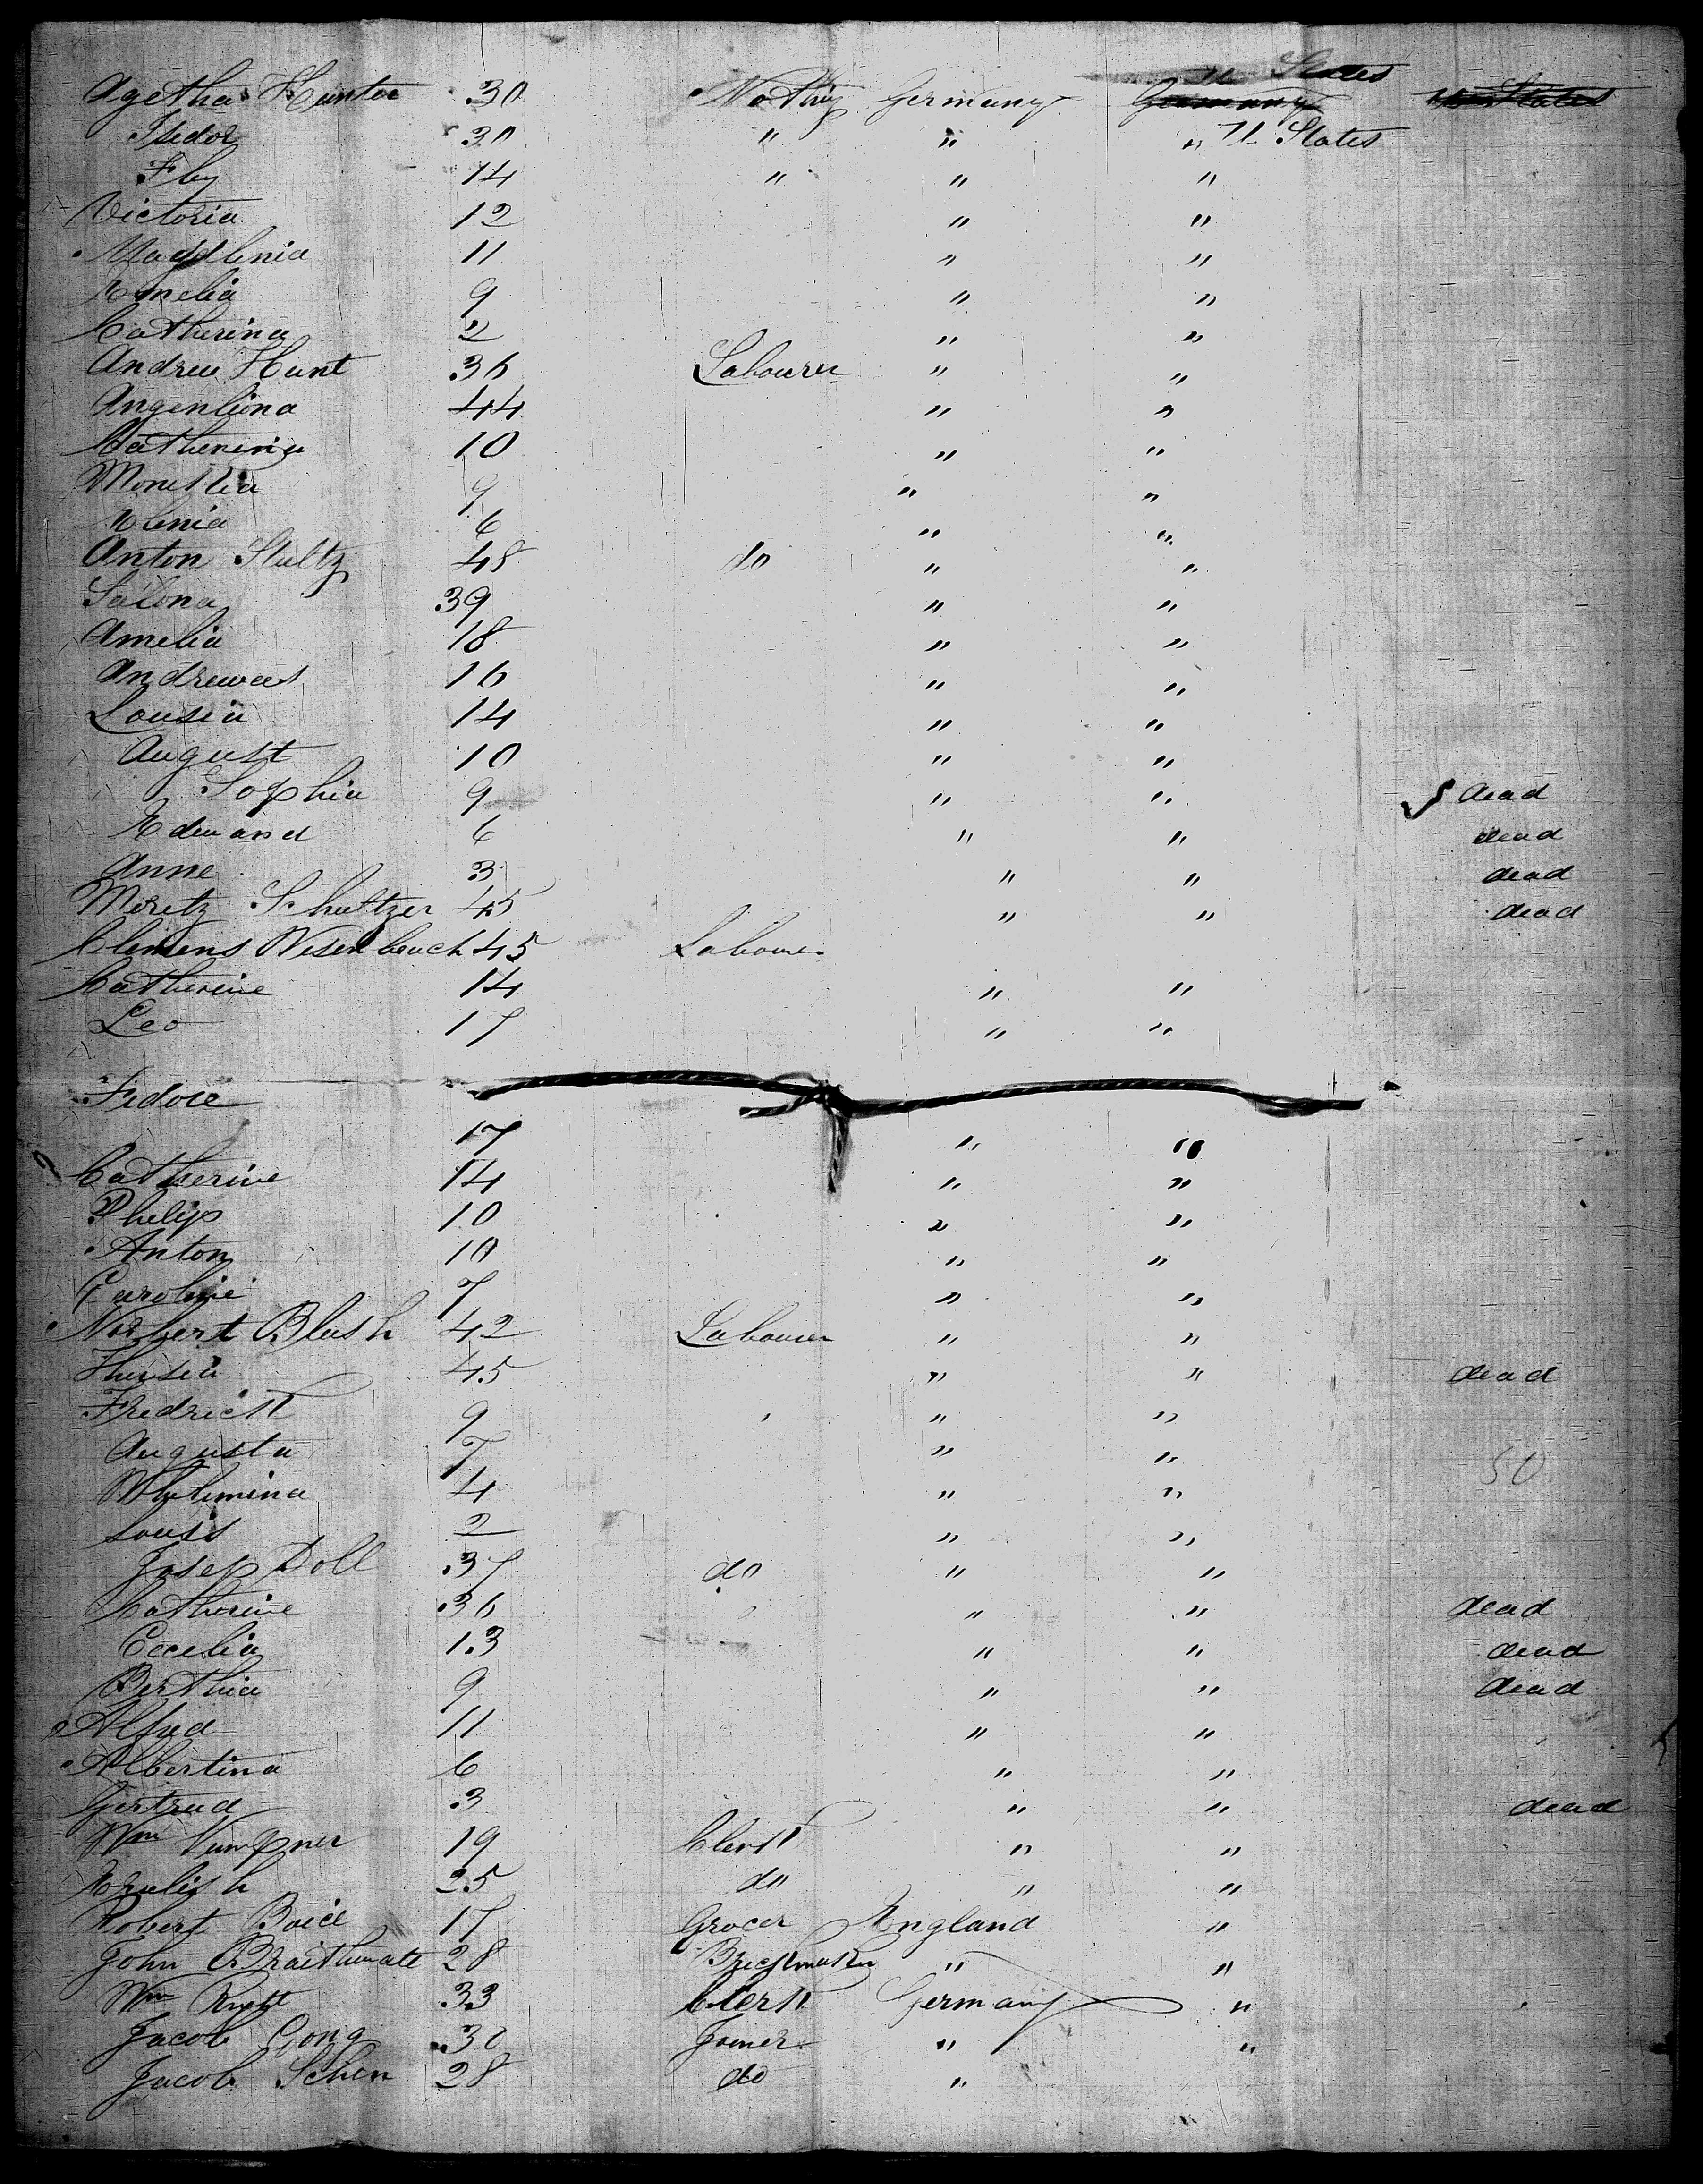 U States
Agetha Hunter 30 Nothing Germany Germany
Isidor 30 " " " U States
Fly 14 " " "
Victoria 12 " "
Magdlenia 11 " "
Emelia 9 " "
Catherina 2 " "
Andrew Hunt 36 Labourer " "
Angenliena 44 " "
Catherenia 10 " "
9 " "
Elenia 6 " "
Anton Stultz 48 do " "
Salona 39 " "
Amelia 18 " "
Andrewas 16 " "
Lousia 14 " "
August 10 " "
Sophia 9 " " dead
Edward 6 " " dead
Anne 3 " " dead
Moretz Shultzer 45 " " dead
Clemens Wesenbeuch 45 Labourer
Catherine 14 " "
Leo 17 " "
Fidore
17 " "
Catherine 14 " "
Philip 10 " "
Anton 10 " "
Caroline 7 " "
Norbert Blush 42 Labourer " "
45 " " dead
Fredrick 9 " "
Augusta 7 " "
Whilimina 4 " " 50
Louis 2 " "
Josep Doll 37 do " "
Catherine 36 " " dead
Cecelia 13 " " dead
Berthia 9 " " dead
Alfred 11 " "
Albertina 6 " "
Gertrud 3 " " dead
Wm 19 Clerk " "
25 do " "
Robert Boice 17 Grocer England "
John Braithwate 28 Brickmaker " "
Wm 33 Clerk Germany "
Jacob Gong 30 Joiner " "
Jacob Schen 28 do "